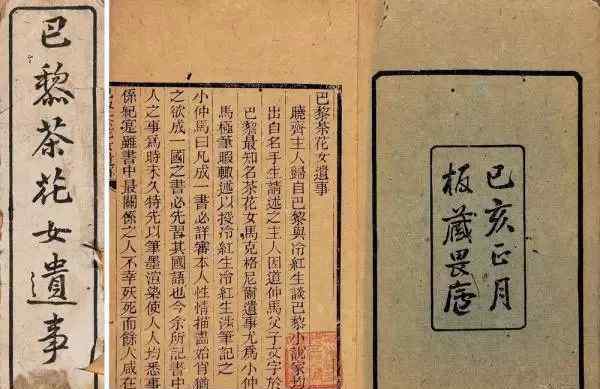 巴黎茶花女遺事
巴黎茶花女遺事
曉齋主人歸自巴黎與冷紅生談巴黎小說家均
出自名手生請述之主人因道仲馬父子文字於
巴黎最知名茶花女馬克格尼爾遺事尤爲小仲
馬極筆暇輒述以授冷紅生冷紅生涉筆記之
小仲馬曰凡成一書必詳審本人性情描畫始肖猶
之欲成一國之書必先習其國語也今余所記書中
人之事爲時未久特先以筆墨渲染使人人均悉事
係紀實雖書中最關係之人不幸夭死而餘人咸在
己亥正月
板藏畏廬